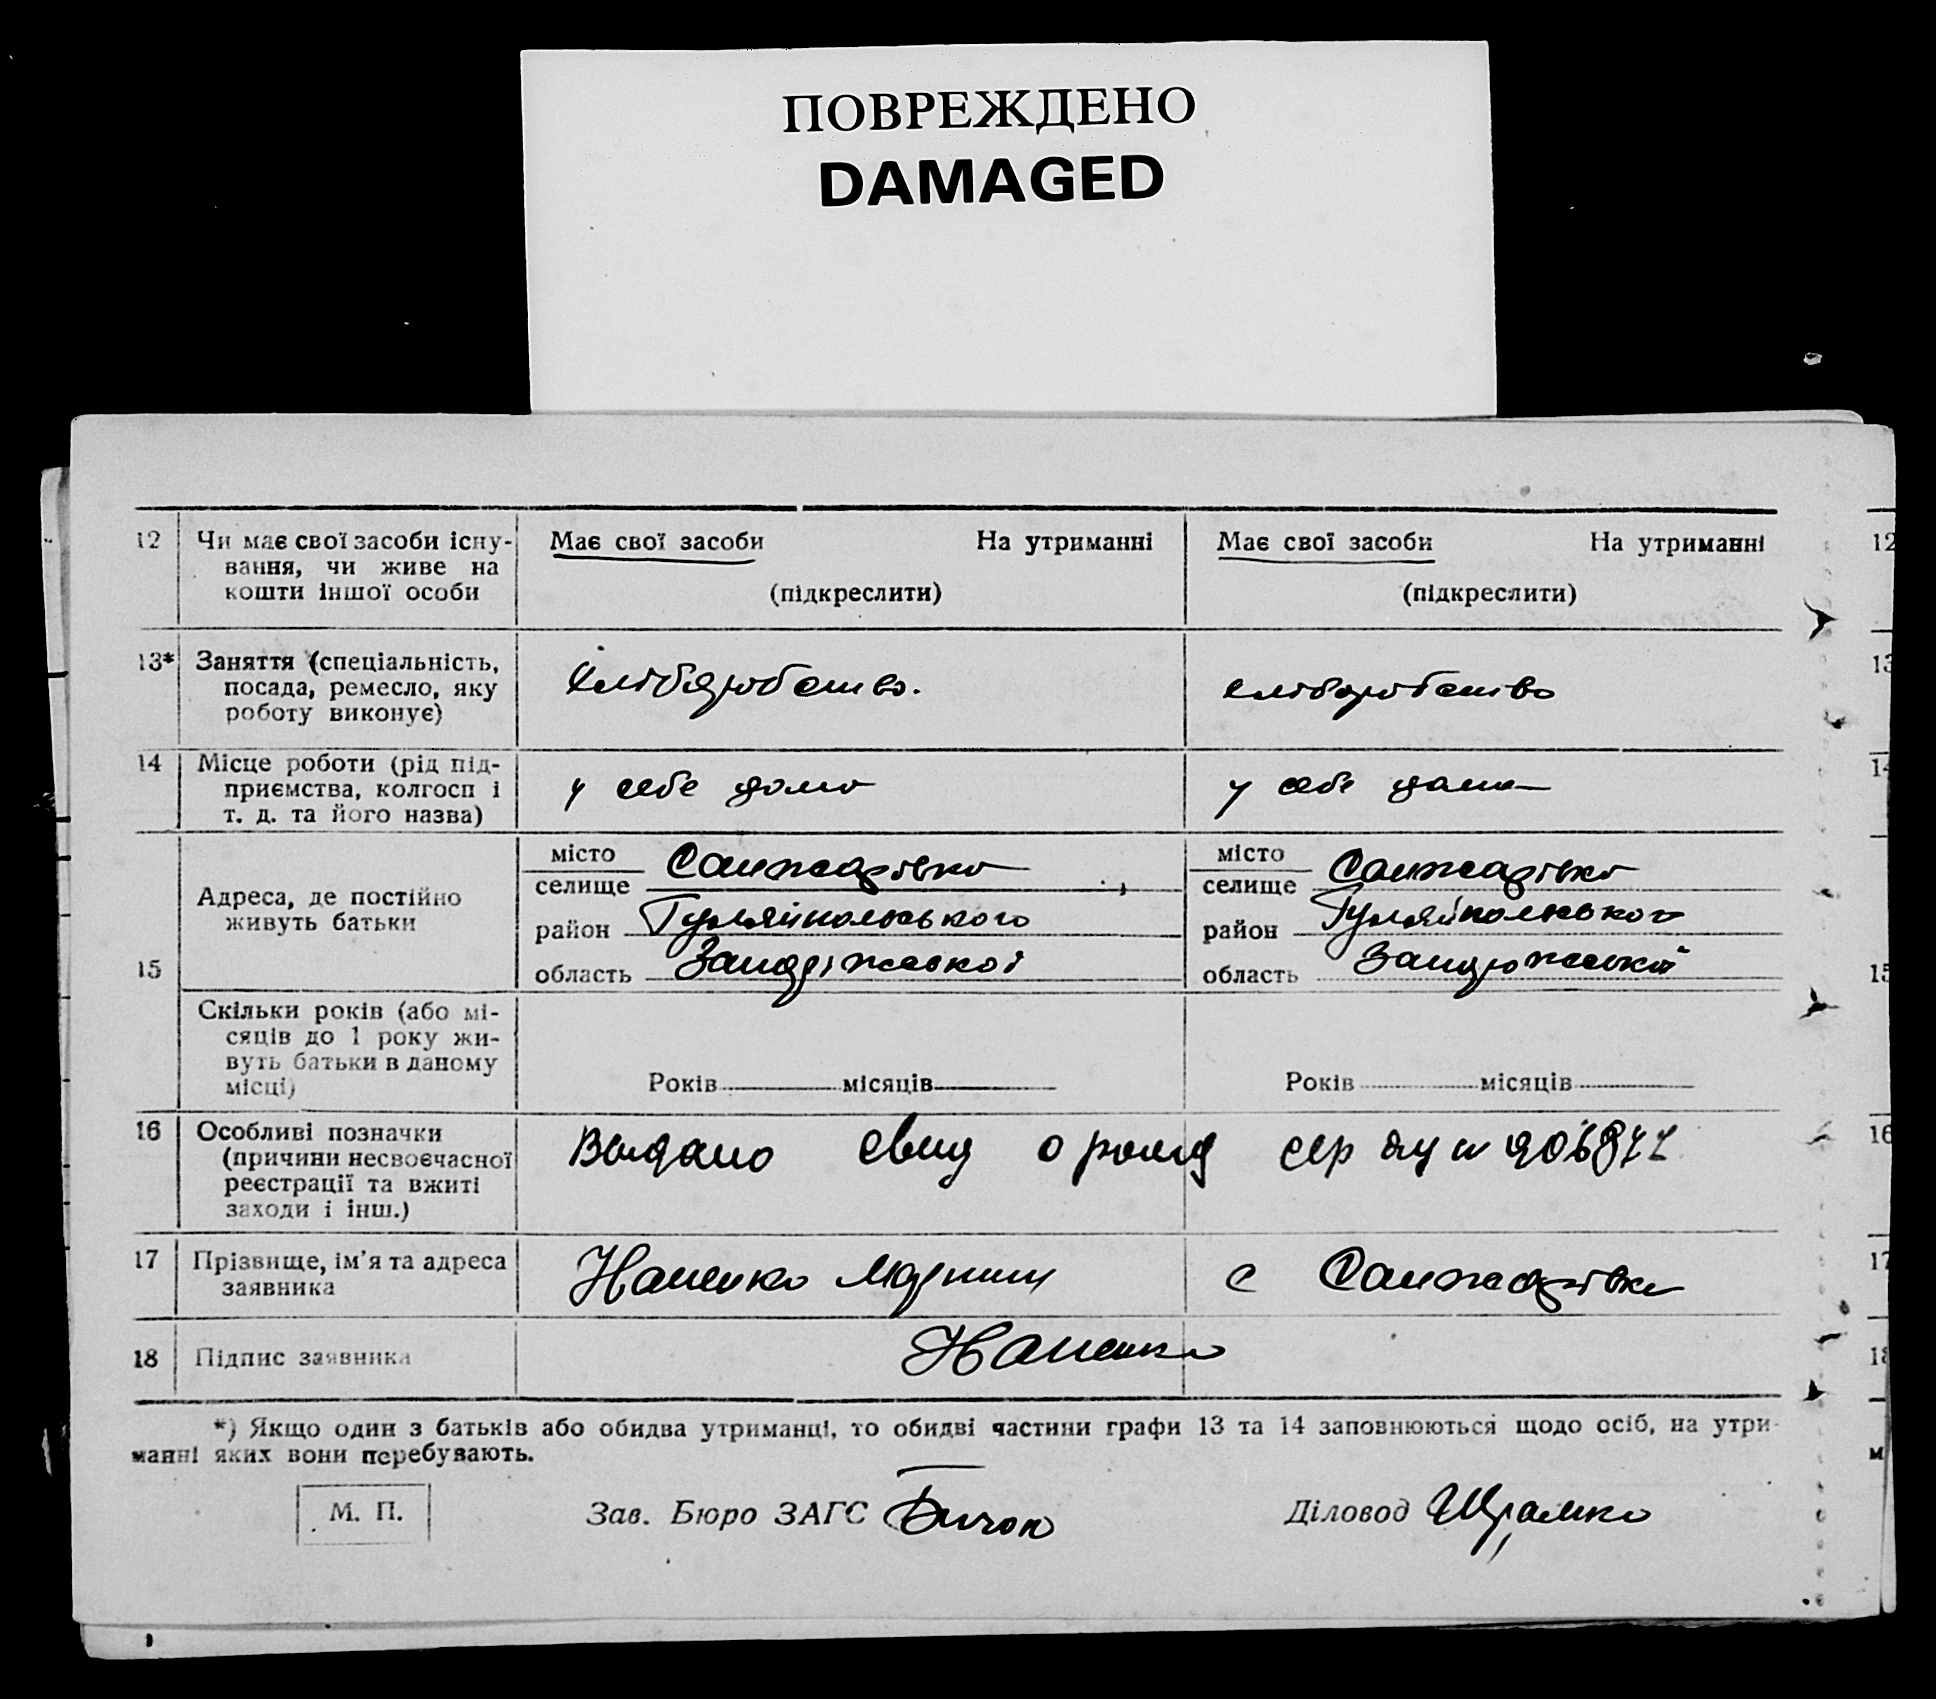 ПОВРЕЖДЕНО
DAMAGED
12 Чи має свої засоби існу-
вання, чи живе на
кошти іншої особи
Має свої засоби На утриманні
(підкреслити)
Має свої засоби На утриманні
(підкреслити)
12
13* Заняття (спеціальність,
посада, ремесло, яку
роботу виконує)
хліборобство.
хліборобство
13
14 Місце роботи (рід під-
приємства, колгосп і
т. д. та його назва)
у себе дома
у себе дома
14
15
Адреса, де постійно
живуть батьки
місто
селище Санжарівка
район Гуляйпольського
область Запоріжської
місто
селище Санжарівка
район Гуляйпольського
область Запоріжської
15
Скільки років (або мі-
сяців до 1 року жи-
вуть батьки в даному
місці)
Років місяців
Років місяців
16 Особливі позначки
(причини несвоєчасної
реєстрації та вжиті
заходи і інш.)
Видано свид о рожд сер
16
17 Прізвище, ім'я та адреса
заявника
с Санжарівка
17
18 Підпис заявника
18
*) Якщо один з батьків або обидва утриманці, то обидві частини графи 13 та 14 заповнюються щодо осіб, на утри-
манні яких вони перебувають.
м
М. П.
Зав. Бюро ЗАГС
Діловод Шрамко